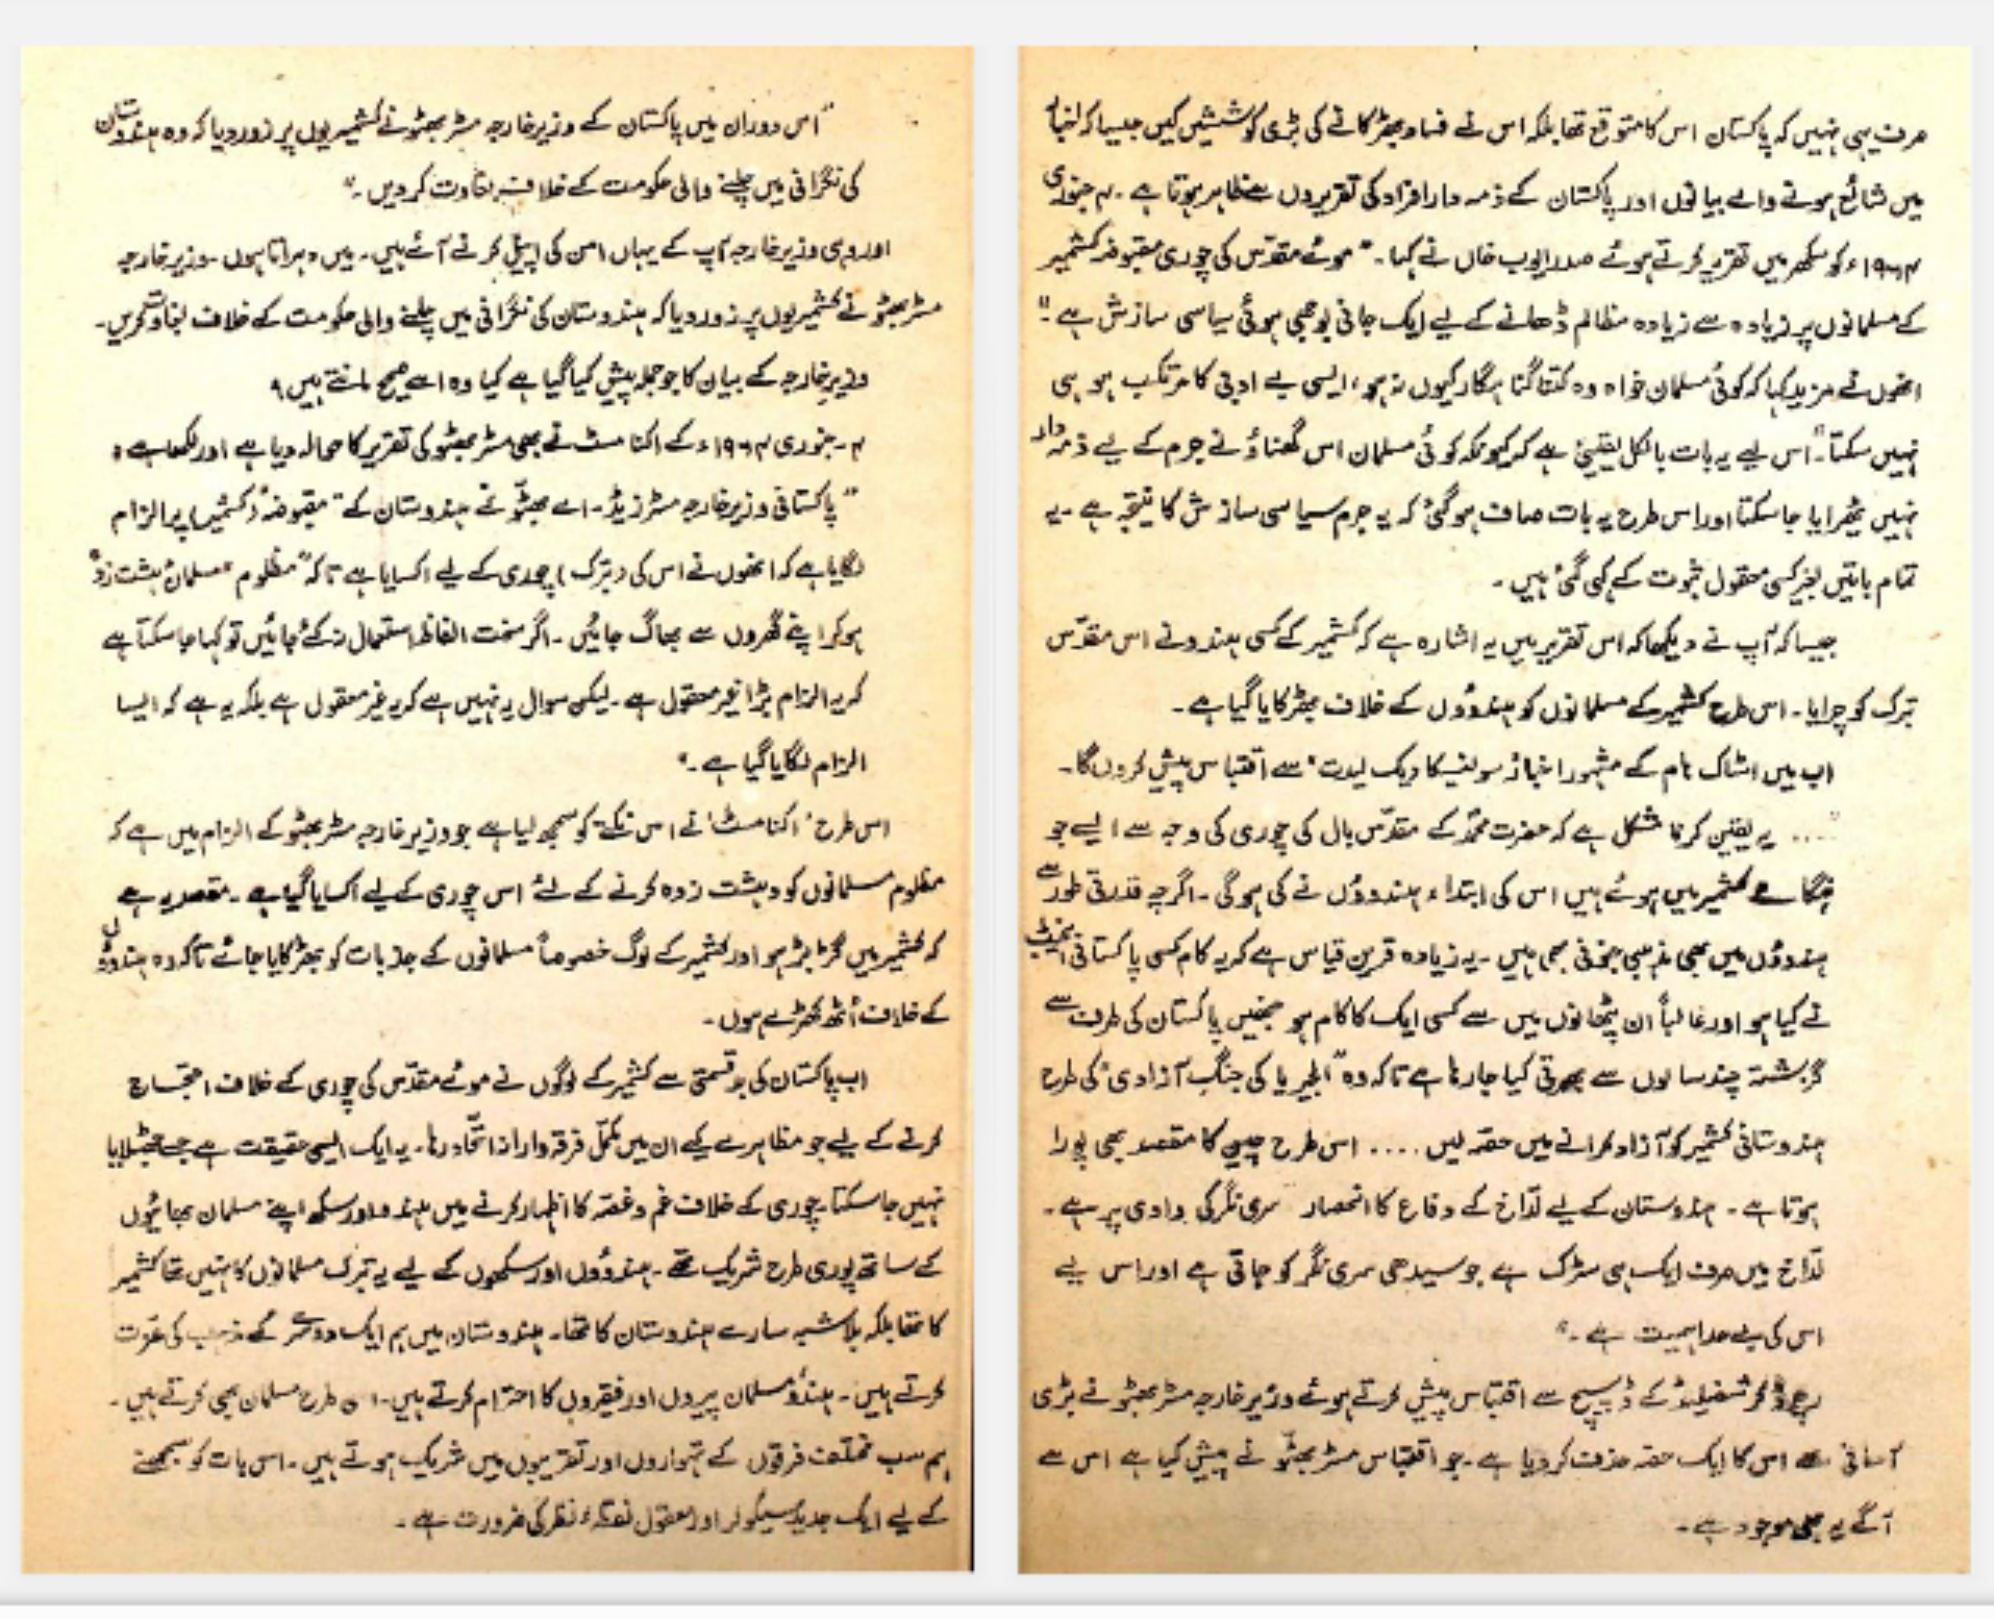 صرف یہی نہیں کہ پاکستان اس کا متوقع تھا بلکہ اس نے فساد بھڑکانے کی بڑی کوششیں کیں جیسا کہ اخبار
میں شائع ہونے والے بیانوں اور پاکستان کے ذمہ دار افراد کی تقریروں سے ظاہر ہوتا ہے ۔ ۴ جنوری
۱۹۶۴ء کو سکھر میں تقریر کرتے ہوئے صدر ایوب خاں نے کہا ۔ "موئے مقدّس کی چوری مقبوضہ کشمیر
کے مسلمانوں پر زیادہ سے زیادہ مظالم ڈھانے کے لیے ایک جانی بوجھی ہوئی سیاسی سازش ہے ۔"
انھوں نے مزید کہا کہ کوئی مسلمان خواہ وہ کتنا گناہگار کیوں نہ ہو، ایسی بے ادبی کا مرتکب ہو ہی
نہیں سکتا ۔ "اس لیے یہ بات بالکل یقینی ہے کہ کیونکہ کوئی مسلمان اس گھناؤنے جرم کے لیے ذمہ دار
نہیں ٹھہرایا جا سکتا اور اس طرح یہ بات صاف ہو گئی کہ یہ جرم سیاسی سازش کا نتیجہ ہے ۔ یہ
تمام باتیں بغیر کسی معقول ثبوت کے کہی گئی ہیں ۔
جیسا کہ آپ نے دیکھا کہ اس تقریر میں یہ اشارہ ہے کہ کشمیر کے کسی ہندو نے اس مقدّس
تبرک کو چرایا ۔ اس طرح کشمیر کے مسلمانوں کو ہندوؤں کے خلاف بھڑکایا گیا ہے ۔
اب میں اسٹاک ہام کے مشہور اخبار سونسکا ویک لیدت" سے اقتباس پیش کروں گا ۔
".... یہ یقین کرنا مشکل ہے کہ حضرت محمدؐ کے مقدّس بال کی چوری کی وجہ سے ایسے جو
ہنگامے کشمیر میں ہوئے ہیں اس کی ابتداء ہندوؤں نے کی ہوگی ۔ اگرچہ قدرتی طور سے
ہندوؤں میں بھی مذہبی جنونی بھی ہیں ۔ یہ زیادہ قرین قیاس ہے کہ یہ کام کسی پاکستانی ایجنٹ
نے کیا ہو اور غالباً ان پٹھانوں میں سے کسی ایک کا کام ہو جنھیں پاکستان کی طرف سے
گزشتہ چند سالوں سے بھرتی کیا جا رہا ہے تاکہ وہ "الجیریا کی جنگ آزادی" کی طرح
ہندوستانی کشمیر کو آزاد کرانے میں حصّہ لیں .... اس طرح چین کا مقصد بھی پورا
ہوتا ہے ۔ ہندوستان کے لیے لدّاخ کے دفاع کا انحصار سری نگر کی وادی پر ہے ۔
لدّاخ میں صرف ایک ہی سڑک ہے جو سیدھی سری نگر کو جاتی ہے اور اس لیے
اس کی بے حد اہمیت ہے ۔"
رچرڈ کرشفیلڈ کے ڈسپیچ سے اقتباس پیش کرتے ہوئے وزیر خارجہ مسٹر بھٹو نے بڑی
آسانی سے اس کا ایک حصّہ حذف کر دیا ہے ۔ جو اقتباس مسٹر بھٹّو نے پیش کیا ہے اس سے
آگے یہ بھی موجود ہے ۔
"اس دوران میں پاکستان کے وزیر خارجہ مسٹر بھٹو نے کشمیریوں پر زور دیا کہ وہ ہندوستان
کی نگرانی میں چلنے والی حکومت کے خلاف بغاوت کر دیں ۔"
اور وہی وزیر خارجہ آپ کے یہاں امن کی اپیل کرنے آئے ہیں ۔ میں دہراتا ہوں ۔ وزیر خارجہ
مسٹر بھٹو نے کشمیریوں پر زور دیا کہ ہندوستان کی نگرانی میں چلنے والی حکومت کے خلاف بغاوت کریں ۔
وزیر خارجہ کے بیان کا جو جملہ پیش کیا گیا ہے کیا وہ اسے صحیح مانتے ہیں ؟
۴ ۔ جنوری ۱۹۶۴ء کے اکنامسٹ نے بھی مسٹر بھٹو کی تقریر کا حوالہ دیا ہے اور لکھا ہے :
"پاکستانی وزیر خارجہ مسٹر زیڈ ۔ اے بھٹّو نے ہندوستان کے "مقبوضہ" (کشمیر) پر الزام
لگایا ہے کہ انھوں نے اس کی (تبرک) چوری کے لیے اکسایا ہے تاکہ "مظلوم" مسلمان دہشت زدہ
ہو کر اپنے گھروں سے بھاگ جائیں ۔ اگر سخت الفاظ استعمال نہ کئے جائیں تو کہا جا سکتا ہے
کہ یہ الزام بڑا غیر معقول ہے ۔ لیکن سوال یہ نہیں ہے کہ یہ غیر معقول ہے بلکہ یہ ہے کہ ایسا
الزام لگایا گیا ہے ۔"
اس طرح 'اکنامسٹ' نے اس نکتے کو سمجھ لیا ہے جو وزیر خارجہ مسٹر بھٹو کے الزام میں ہے کہ
مظلوم مسلمانوں کو دہشت زدہ کرنے کے لئے اس چوری کے لیے اکسایا گیا ہے ۔ مقصد یہ ہے
کہ کشمیر میں گڑبڑ ہو اور کشمیر کے لوگ خصوصاً مسلمانوں کے جذبات کو بھڑکایا جائے تاکہ وہ ہندوؤں
کے خلاف اُٹھ کھڑے ہوں ۔
اب پاکستان کی بدقسمتی سے کشمیر کے لوگوں نے موئے مقدّس کی چوری کے خلاف احتجاج
کرنے کے لیے جو مظاہرے کیے ان میں مکمّل فرقہ وارانہ اتّحاد رہا ۔ یہ ایک ایسی حقیقت ہے جسے جھٹلایا
نہیں جا سکتا ۔ چوری کے خلاف غم و غصّہ کا اظہار کرنے میں ہندو اور سکھ اپنے مسلمان بھائیوں
کے ساتھ پوری طرح شریک تھے ۔ ہندوؤں اور سکھوں کے لیے یہ تبرک مسلمانوں کا نہیں تھا کشمیر
کا تھا بلکہ بلا شبہ سارے ہندوستان کا تھا ۔ ہندوستان میں ہم ایک دوسرے کے مذہب کی عزّت
کرتے ہیں ۔ ہندو مسلمان پیروں اور فقیروں کا احترام کرتے ہیں ۔ اسی طرح مسلمان بھی کرتے ہیں ۔
ہم سب مختلف فرقوں کے تہواروں اور تقریبوں میں شریک ہوتے ہیں ۔ اس بات کو سمجھنے
کے لیے ایک جدید سیکولر اور معقول نقطۂ نظر کی ضرورت ہے ۔